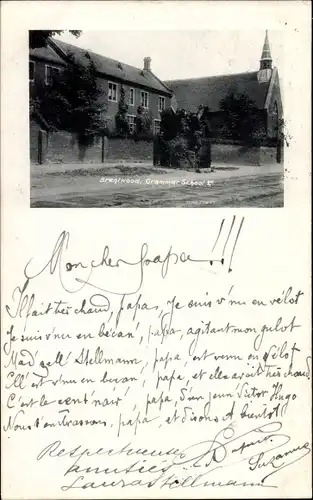 Brentwood. Grammar School
Mon cher Papa!!!
Il fait très chaud, papa, Je suis v'nu en vélot
Je suis v'nu en bécan', papa, agitant mon gulot
Mad'zell' Stellmann, papa, est venu en vélot
Ell' est v'nu en bécan, papa, et elle avait très chaud
C'est le cent'nair', papa, d'un Victor Hugo
Nous t'embrassons, papa, et disons à bientôt
Respectueuses
amitiés
Laura Stellmann
Suzanne